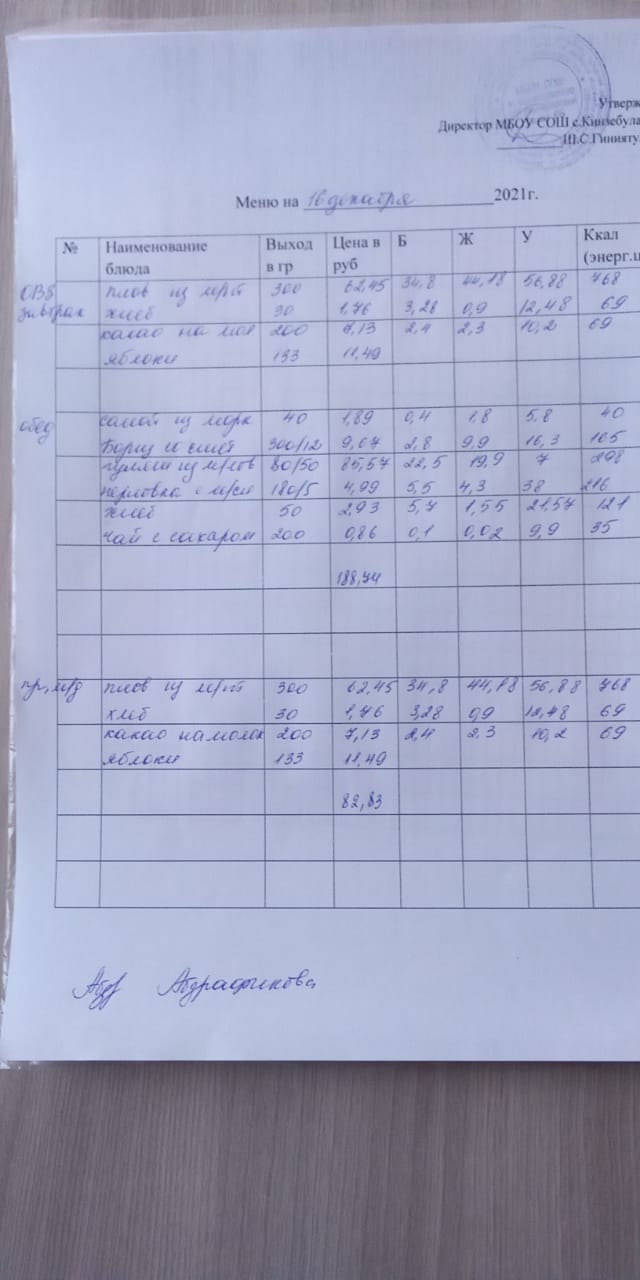 Утверж
Директор МБОУ СОШ с.Кинзебула
Ш.С.Гинияту
Меню на 16 декабря 2021г.
№ Наименование блюда Выход в гр Цена в руб Б Ж У Ккал (энерг.ц
ОВЗ плов из 300 62,45 34,8 44,18 56,88 768
завтрак хлеб 30 1,76 3,28 0,9 12,48 69
какао на мол 200 7,13 2,4 2,3 10,2 69
яблоки 133 11,49
обед салат из морк 40 1,89 0,4 1,8 5,8 40
Борщ со смет 300/12 9,67 2,8 9,9 16,3 165
гуляш из 80/50 85,57 22,5 19,9 7 298
перловка с м/сл 180/5 4,99 5,5 4,3 38 216
хлеб 50 2,93 5,7 1,55 21,57 121
чай с сахаром 200 0,86 0,1 0,02 9,9 35
188,74
плов из 300 62,45 34,8 44,18 56,88 768
хлеб 30 1,76 3,28 0,9 12,48 69
какао на молок 200 7,13 2,4 2,3 10,2 69
яблоки 133 11,49
82,83
Абдрафикова